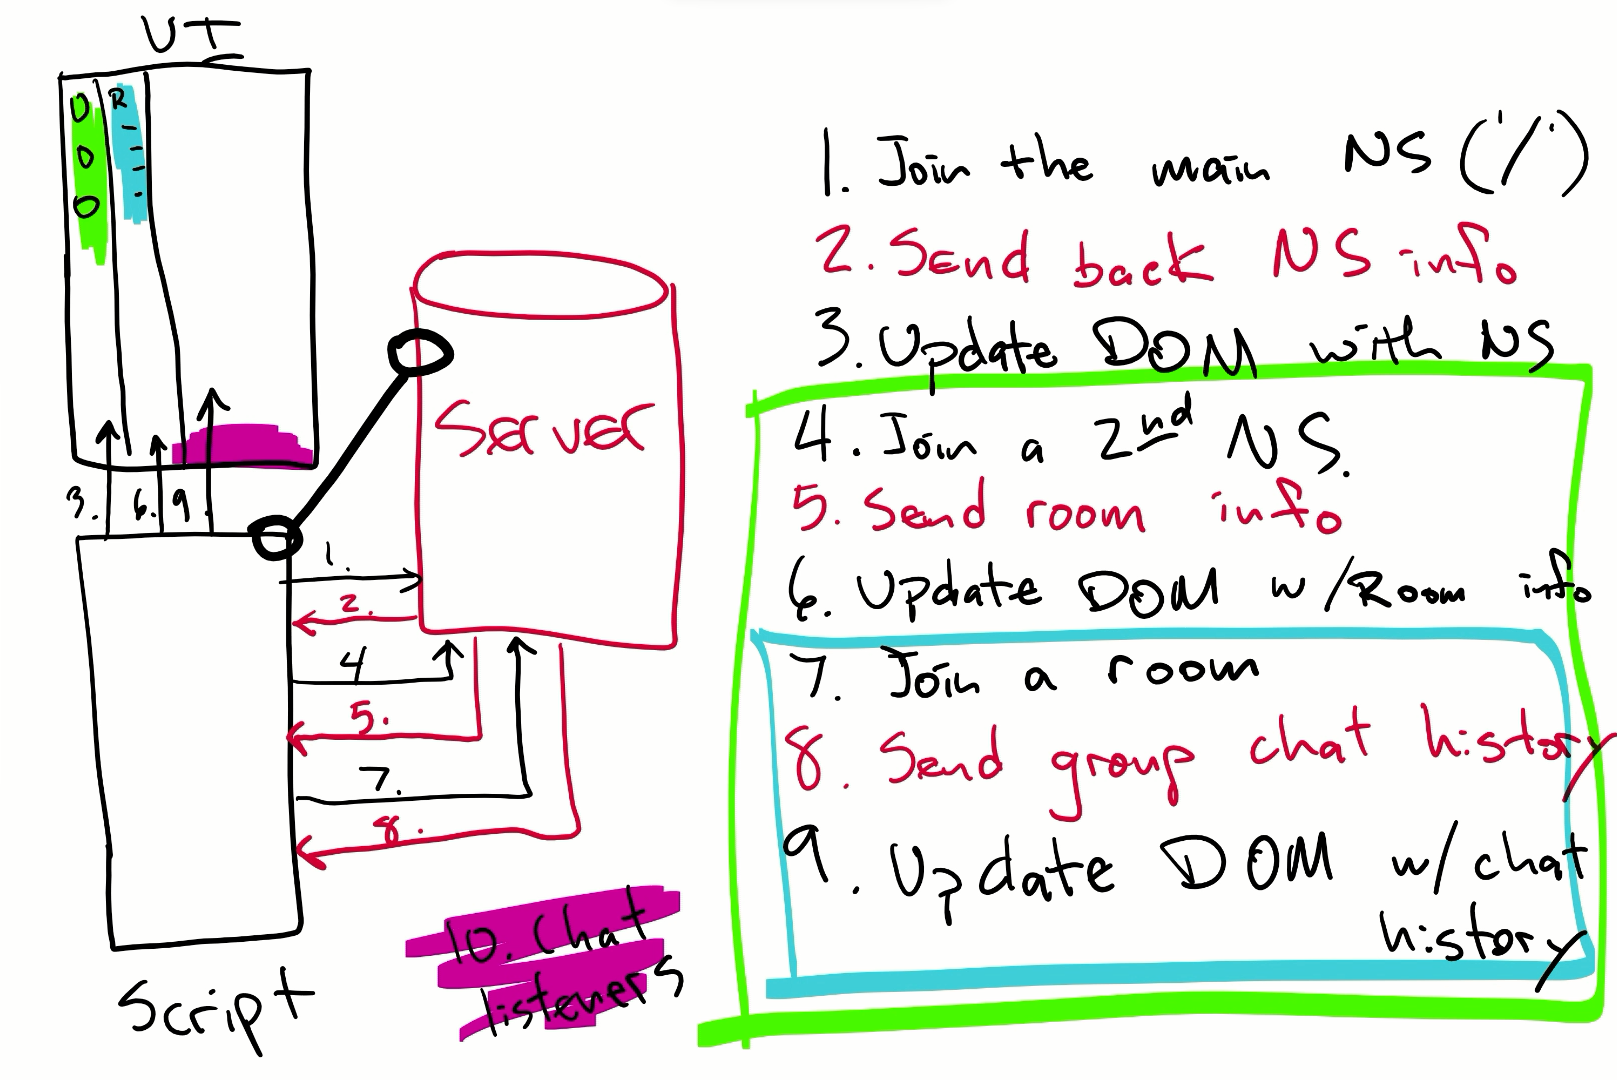 UI
R
3. 6. 9.
1.
2.
4
5.
7.
8.
Server
Script
10. Chat
listeners
1. Join the main NS ('/')
2. Send back NS info
3. Update DOM with NS
4. Join a 2nd NS.
5. Send room info
6. Update DOM w/Room info
7. Join a room
8. Send group chat history
9. Update DOM w/ chat
history